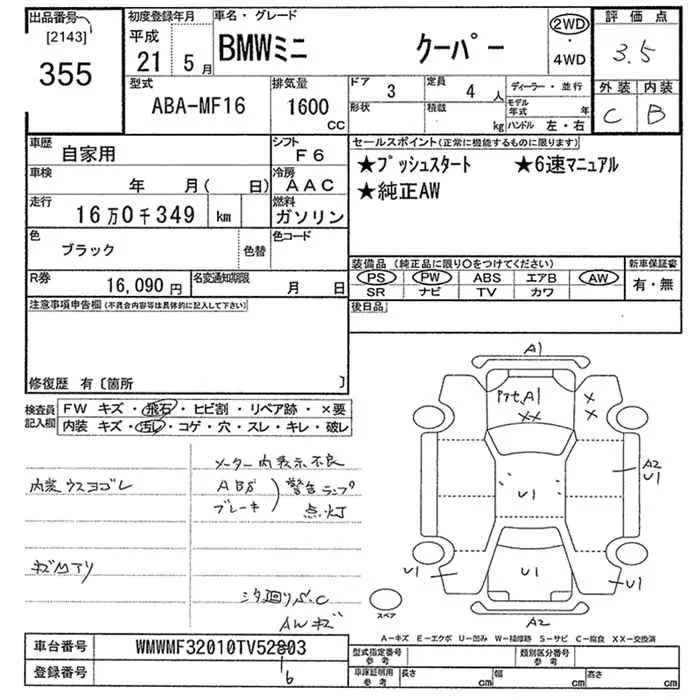 出品番号
[2143]
355
初度登録年月
平成
21年5月
車名・グレード
BMWミニ クーパー
2WD
・
4WD
評価点
3.5
外装 内装
C B
型式
ABA-MF16
排気量
1600
CC
ドア 3
定員 4人
ディーラー・並行
形状
積載 kg
モデル年式 年
ハンドル 左・右
車歴
自家用
シフト
F6
車検
年 月( 日)
冷房
AAC
走行
16万0千349 km
燃料
ガソリン
色
ブラック
色替
色コード
R券
16,090円
名変通知期限
月 日
セールスポイント(正常に機能するものに限ります)
★プッシュスタート ★6速マニュアル
★純正AW
装備品(純正品に限り○をつけてください)
PS PW ABS エアB AW
SR ナビ TV カワ
新車保証書
有・無
後日品
注意事項申告欄(不具合内容等は具体的に記入して下さい)
修復歴 有〔箇所 〕
検査員
記入欄
FW キズ・飛石・ヒビ割・リペア跡・×要
内装 キズ・汚レ・コゲ・穴・スレ・キレ・破レ
メーター内表示不良
内装ウスヨゴレ
ABS
ブレーキ
警告ランプ
点灯
キズMアリ
シタ廻りS.C
AWキズ
A1
Pタt.A1
××
×
×
A2
U1
U1
U1
U1
U1
A2
スペア
A−キズ E−エクボ U−凹み W−補修跡 S−サビ C−腐食 XX−交換済
車台番号
WMWMF32010TV52803
6
登録番号
型式指定番号
参考
類別区分番号
参考
車庫証明用
参考
長さ cm
幅 cm
高さ cm